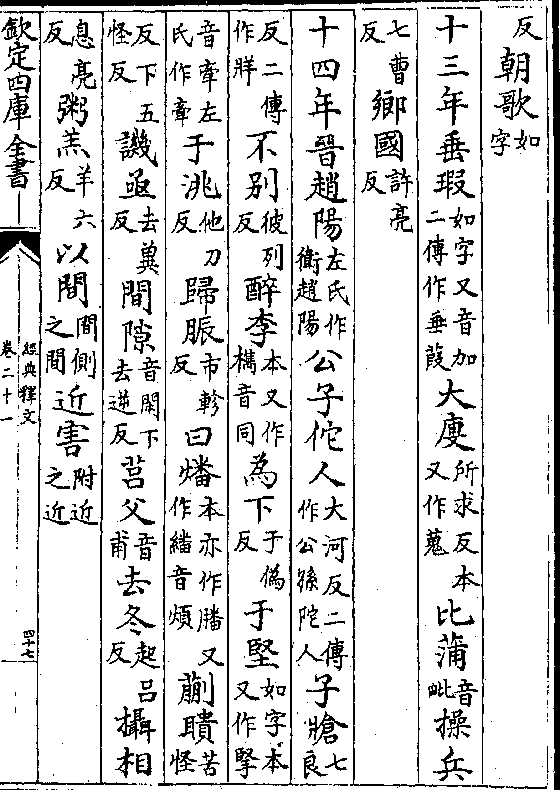 反朝歌如字
十三年垂瑕如字又音加二傳作垂葭大廋所求反本又作蒐比蒲音毗操兵
七曹反鄉國許亮反
十四年晉趙陽左氏作衛趙陽公子佗人大河反二傳作公孫陀人子牄七良
反二傳作牂不別彼列反醉李本又作檇音同為下于偽反于堅如字本又作掔
音牽左氏作牽于洮他刀反歸脤市軫反曰燔本亦作膰又作繙音煩蒯聵苦怪
反下五怪反譏亟去兾反間隙音閑下去逆反莒父音甫去冬起呂反攝相
息亮反粥羔羊六反以間間側之間近害附近之近
欽定四庫全書
經典釋文
卷二十一
四十七